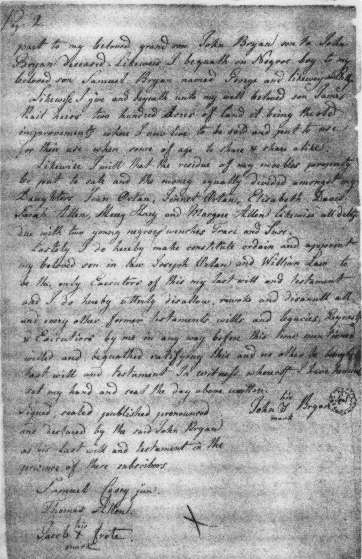 Pag. 2
part to my beloved grand son John Bryan son to John
Bryan deceased Likeweis I bequath on Negroe boy to my
beloved son Samuel Bryan named George and likewey
Likewise I give and bequath unto my well beloved son James
thair heirs two hundred Acres of Land it being the old
improvements where I now live to be said and put to use
for their use when some of age to share & share alike
Likewise I will that the residue of my movebles property
be put to sale and the money equally divided amongst my
Daughters, Jean Orlan, Elisabeth
Sarah Allen, Mary and Margret Allen Likewise all debts
due with two young negroes wenches Grace and
Lastely I do hereby make constitute ordain and appoynt
my beloved son in law Joseph Orlan and William Law to
be the only Executors of this my last will and testament
and I do hereby utterly disallow, revoke and disanull all
and every other former testaments, wills and legacies,
& Executors by me in any way before this time named
willed and bequathed ratifying this and no other to be my
last will and testament In witness whereoff I have hereunto
set my hand and seal the day above written
signed sealed published pronounced
and declared by the said John Bryan
as his Last will and testament in the
presence of these subscribers
John his Bryan
mark
Samuel jun.
Thomas Allen.
Jacob his
mark